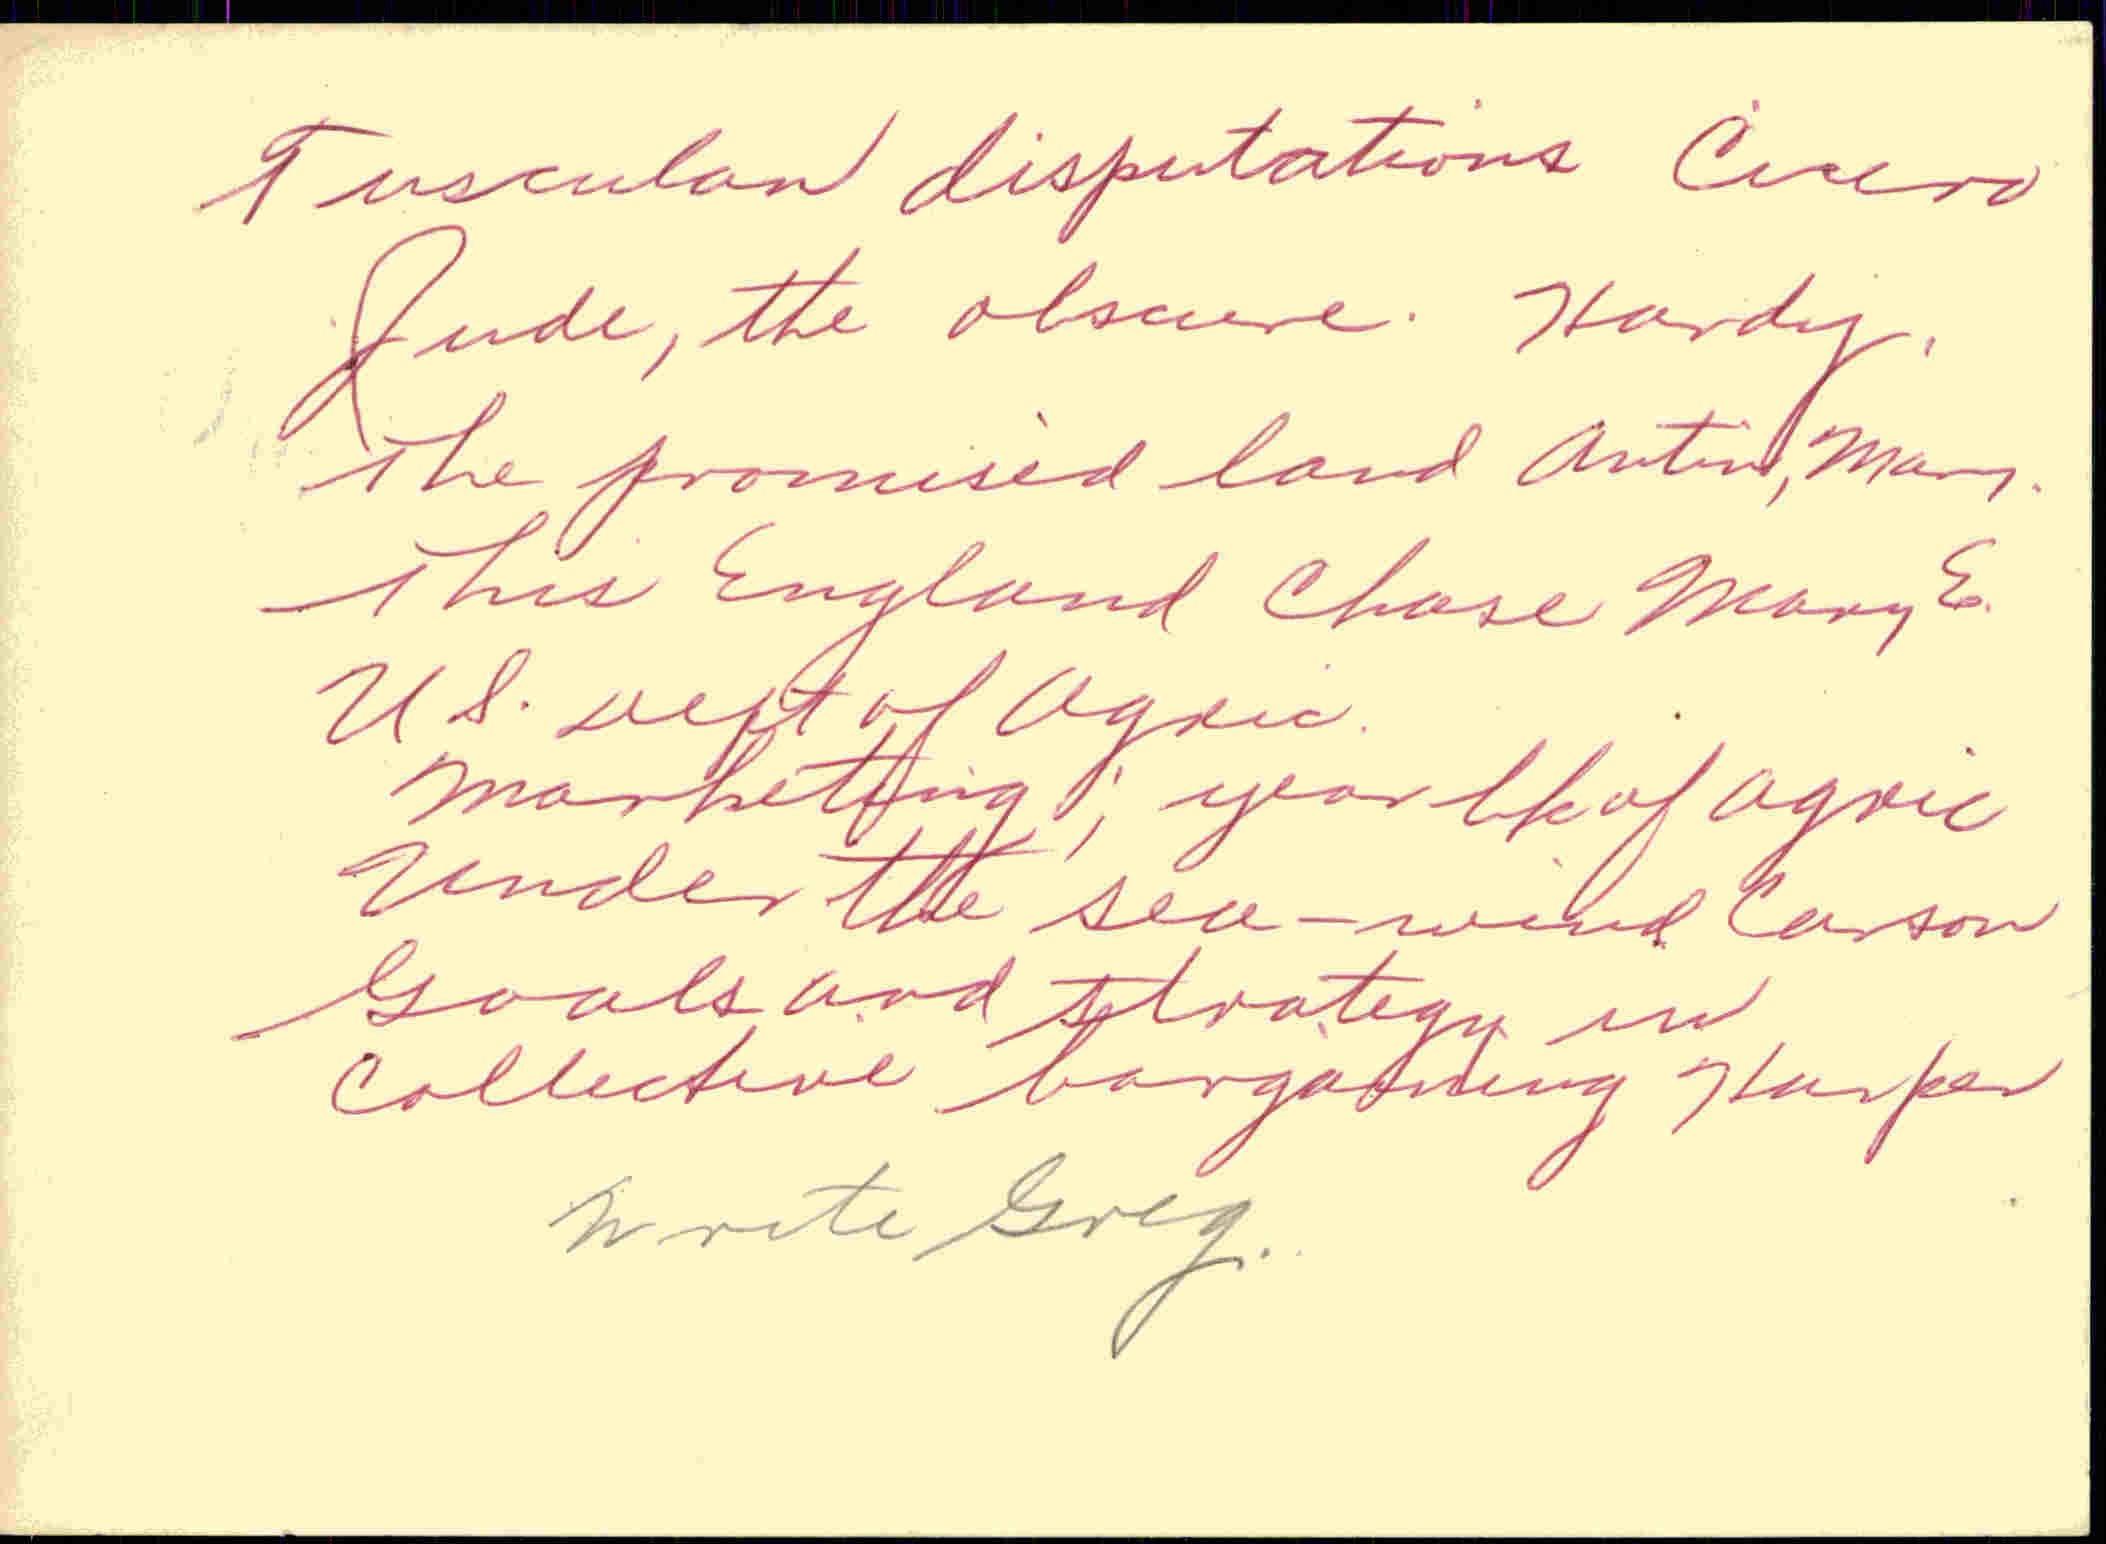 Tusculan disputations Cicero
Jude, the obscure. Hardy.
The promised land Antin, Mary.
This England Chase Mary E.
U S. dept of Agric.
Marketing; year bk of Agric
Under the sea-wind Carson
Goals and strategy in
Collective bargaining Harper
Write Greg.